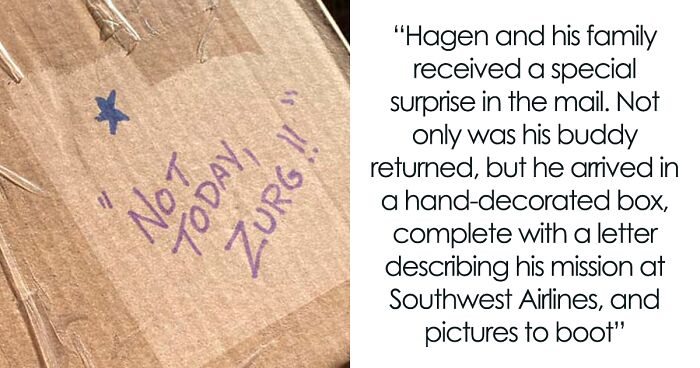 "NOT
TODAY,
ZURG!!"
“Hagen and his family
received a special
surprise in the mail. Not
only was his buddy
returned, but he arrived in
a hand-decorated box,
complete with a letter
describing his mission at
Southwest Airlines, and
pictures to boot”